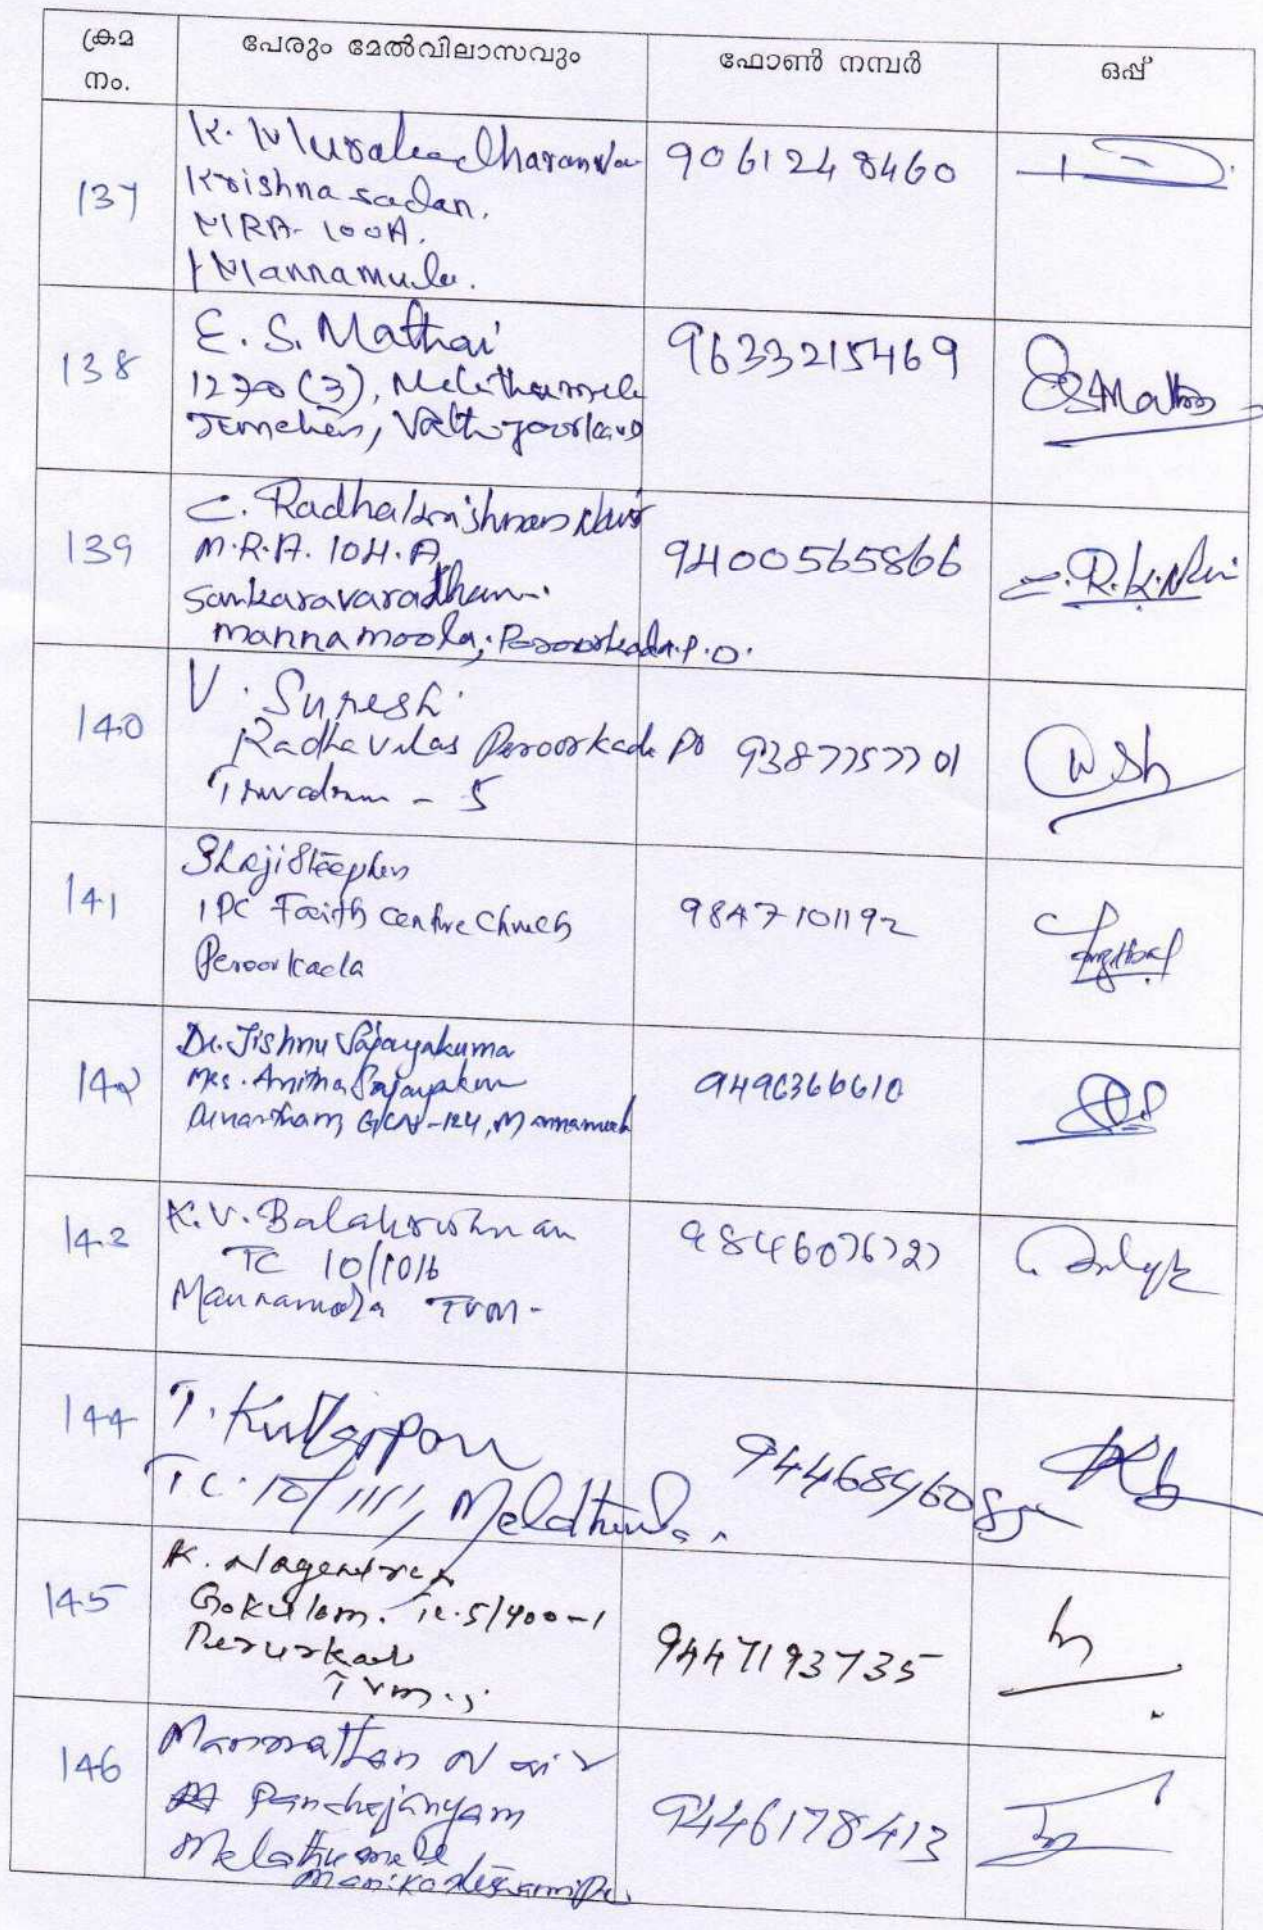 ക്രമ നം.
പേരും മേൽവിലാസവും
ഫോൺ നമ്പർ
ഒപ്പ്
137
K. Muraleedharan Na
Krishna sadan.
MRA-100A.
Mannamula.
9061248460
138
E. S. Mathai
1270 (3), Melathumele
Junction, Vattiyoorkavu
9633215469
ES Mathai
139
C. Radhakrishnan Nair
M.R.A. 104.A,
Sankaravaradham.
mannamoola, Peroorkada.P.O.
9400565866
C. R. K. Nair
140
V. Suresh
Radhavilas Peroorkada PO
Trivadrum - 5
9387757701
141
Shaji Steephen
IPC Faith centre Church
Peroorkada
9847101192
142
Dr. Jishnu
Mrs. Anitha
GCN-124, Mannamoola
9496366610
143
K.V. Balakrishnan
TC 10/1016
Mannamoola TVM-
9846076727
144
T. Kuttappan
TC. 10/1111, Melathumele
145
K. Nagendran
Gokulam. Tc.5/400-1
Perurkada
Tvm.5
9447193735
146
Manmathan Nair
Panchajanyam
Melathumele
Manikanteswaram P.O.
9446178413